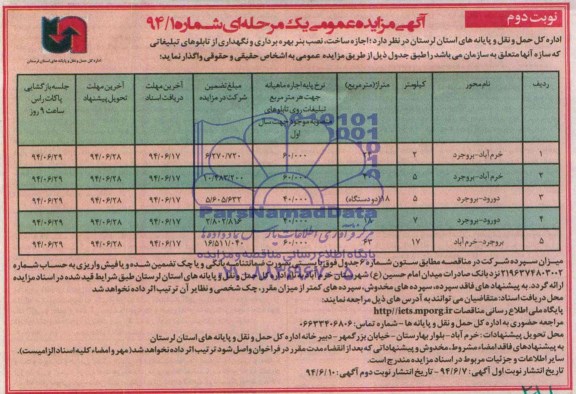 نوبت دوم
آگهی مزایده عمومی یک مرحله ای شماره ۹۴/۱
اداره کل حمل و نقل و پایانه های استان لرستان
اداره کل حمل و نقل و پایانه های استان لرستان در نظر دارد؛ اجازه ساخت، نصب بنر بهره برداری و نگهداری از تابلوهای تبلیغاتی
که سازه آنها متعلق به سازمان می باشد را طبق جدول ذیل از طریق مزایده عمومی به اشخاص حقیقی و حقوقی واگذار نماید:
ردیف نام محور کیلومتر متراژ(متر مربع) نرخ پایه اجاره ماهیانه جهت هر متر مربع تبلیغات روی تابلوهای موجود جهت سال اول مبلغ تضمین شرکت در مزایده آخرین مهلت دریافت اسناد آخرین مهلت تحویل پیشنهاد جلسه بازگشایی پاکات راس ساعت ۹ روز
۱ خرم آباد-بروجرد ۲ ۶۰/۰۰۰ ۶/۲۷۰/۷۲۰ ۹۴/۰۶/۱۷ ۹۴/۰۶/۲۸ ۹۴/۰۶/۲۹
۲ خرم آباد-بروجرد ۵ ۶۰/۰۰۰ ۱۰/۴۸۲/۲۰۰ ۹۴/۰۶/۱۷ ۹۴/۰۶/۲۸ ۹۴/۰۶/۲۹
۳ دورود-بروجرد ۵ ۱۸(دو دستگاه) ۴۰/۰۰۰ ۵/۶۰۵/۶۳۲ ۹۴/۰۶/۱۷ ۹۴/۰۶/۲۸ ۹۴/۰۶/۲۹
۴ دورود-بروجرد ۷ ۴۰/۰۰۰ ۲/۸۰۲/۸۱۶ ۹۴/۰۶/۱۷ ۹۴/۰۶/۲۸ ۹۴/۰۶/۲۹
۵ بروجرد-خرم آباد ۱۷ ۶۳ ۶۰/۰۰۰ ۱۶/۵۱۱/۰۴۰ ۹۴/۰۶/۱۷ ۹۴/۰۶/۲۸ ۹۴/۰۶/۲۹
ParsNamadData
پایگاه اطلاع رسانی مناقصه و مزایده
میزان سپرده شرکت در مناقصه مطابق ستون شماره ۶ جدول فوق بایستی بصورت ضمانتنامه بانکی و یا چک تضمین شده و یا فیش واریزی به حساب شماره
۲۱۹۶۳۷۴۸۰۳۰۰۲ نزد بانک صادرات میدان امام حسین (ع) شهرستان خرم آباد حمل و نقل و پایانه های استان لرستان طبق شرایط قید شده در اسناد مزایده
ارائه گردد. به پیشنهادهای فاقد سپرده، سپرده های مخدوش، سپرده های کمتر از میزان مقرر، چک شخصی و نظایر آن ترتیب اثر داده نخواهد شد
محل دریافت اسناد: متقاضیان می توانند به آدرس های ذیل مراجعه نمایند:
پایگاه ملی اطلاع رسانی مناقصات http://iets.mporg.ir
مراجعه حضوری به اداره کل حمل و نقل و پایانه ها - شماره تماس: ۰۶۶۳۳۴۰۶۸۰۶
محل تحویل پیشنهادات: خرم آباد- بلوار بهارستان - خیابان بزرگمهر - دبیرخانه اداره کل حمل و نقل و پایانه های استان لرستان
به پیشنهادهای فاقد امضاء مشروط، مخدوش و پیشنهاداتی که بعد از انقضاء مدت مقرر در فراخوان واصل شود ترتیب اثر داده نخواهد شد (مهر و امضاء کلیه اسناد الزامیست).
سایر اطلاعات و جزئیات مربوط در اسناد مزایده مندرج است.
تاریخ انتشار نوبت اول آگهی: ۹۴/۶/۷ - تاریخ انتشار نوبت دوم آگهی: ۹۴/۶/۱۰